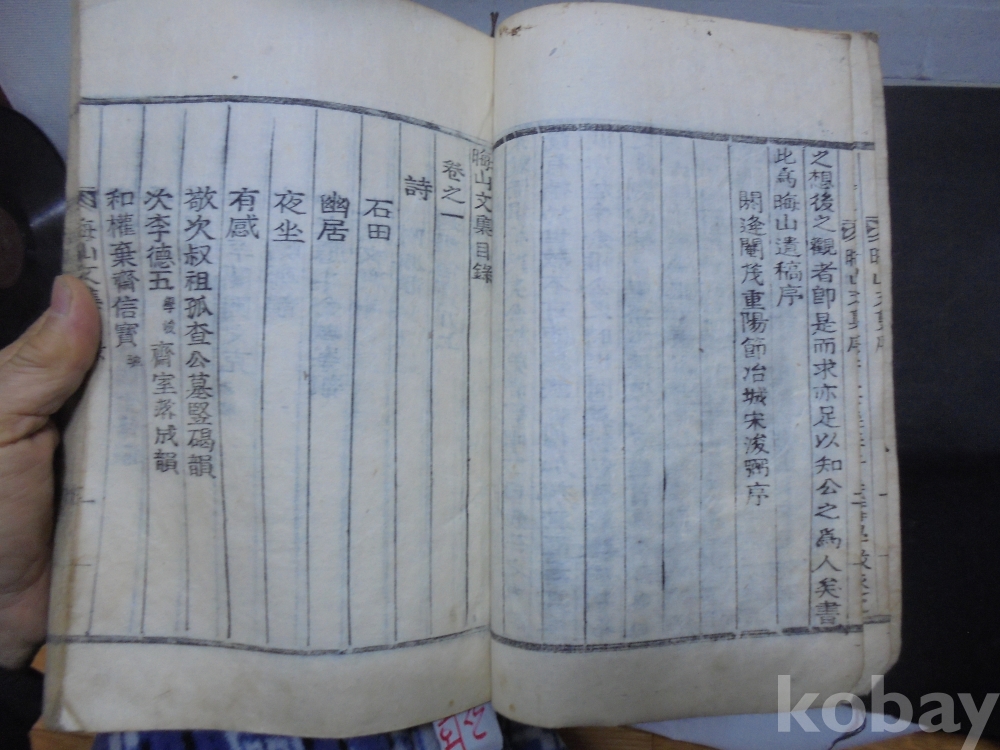 之想後之觀者卽是而求亦足以知公之爲人矣書
此爲晦山遺稿序
閼逢閹茂重陽節冶城宋浚弼序
晦山文集目錄
卷之一
詩
石田
幽居
夜坐
有感
敬次叔祖孤査公墓竪碣韻
次李德五 齋室落成韻
和權棄齋信寶
kobay